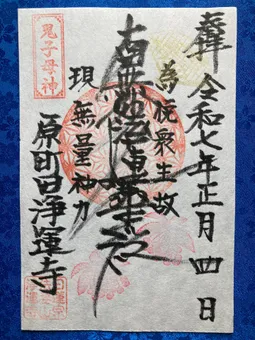 奉拝 令和七年正月四日
為悦衆生故
南無妙法蓮華経
現無量神力
鬼子母神
原町田浄運寺